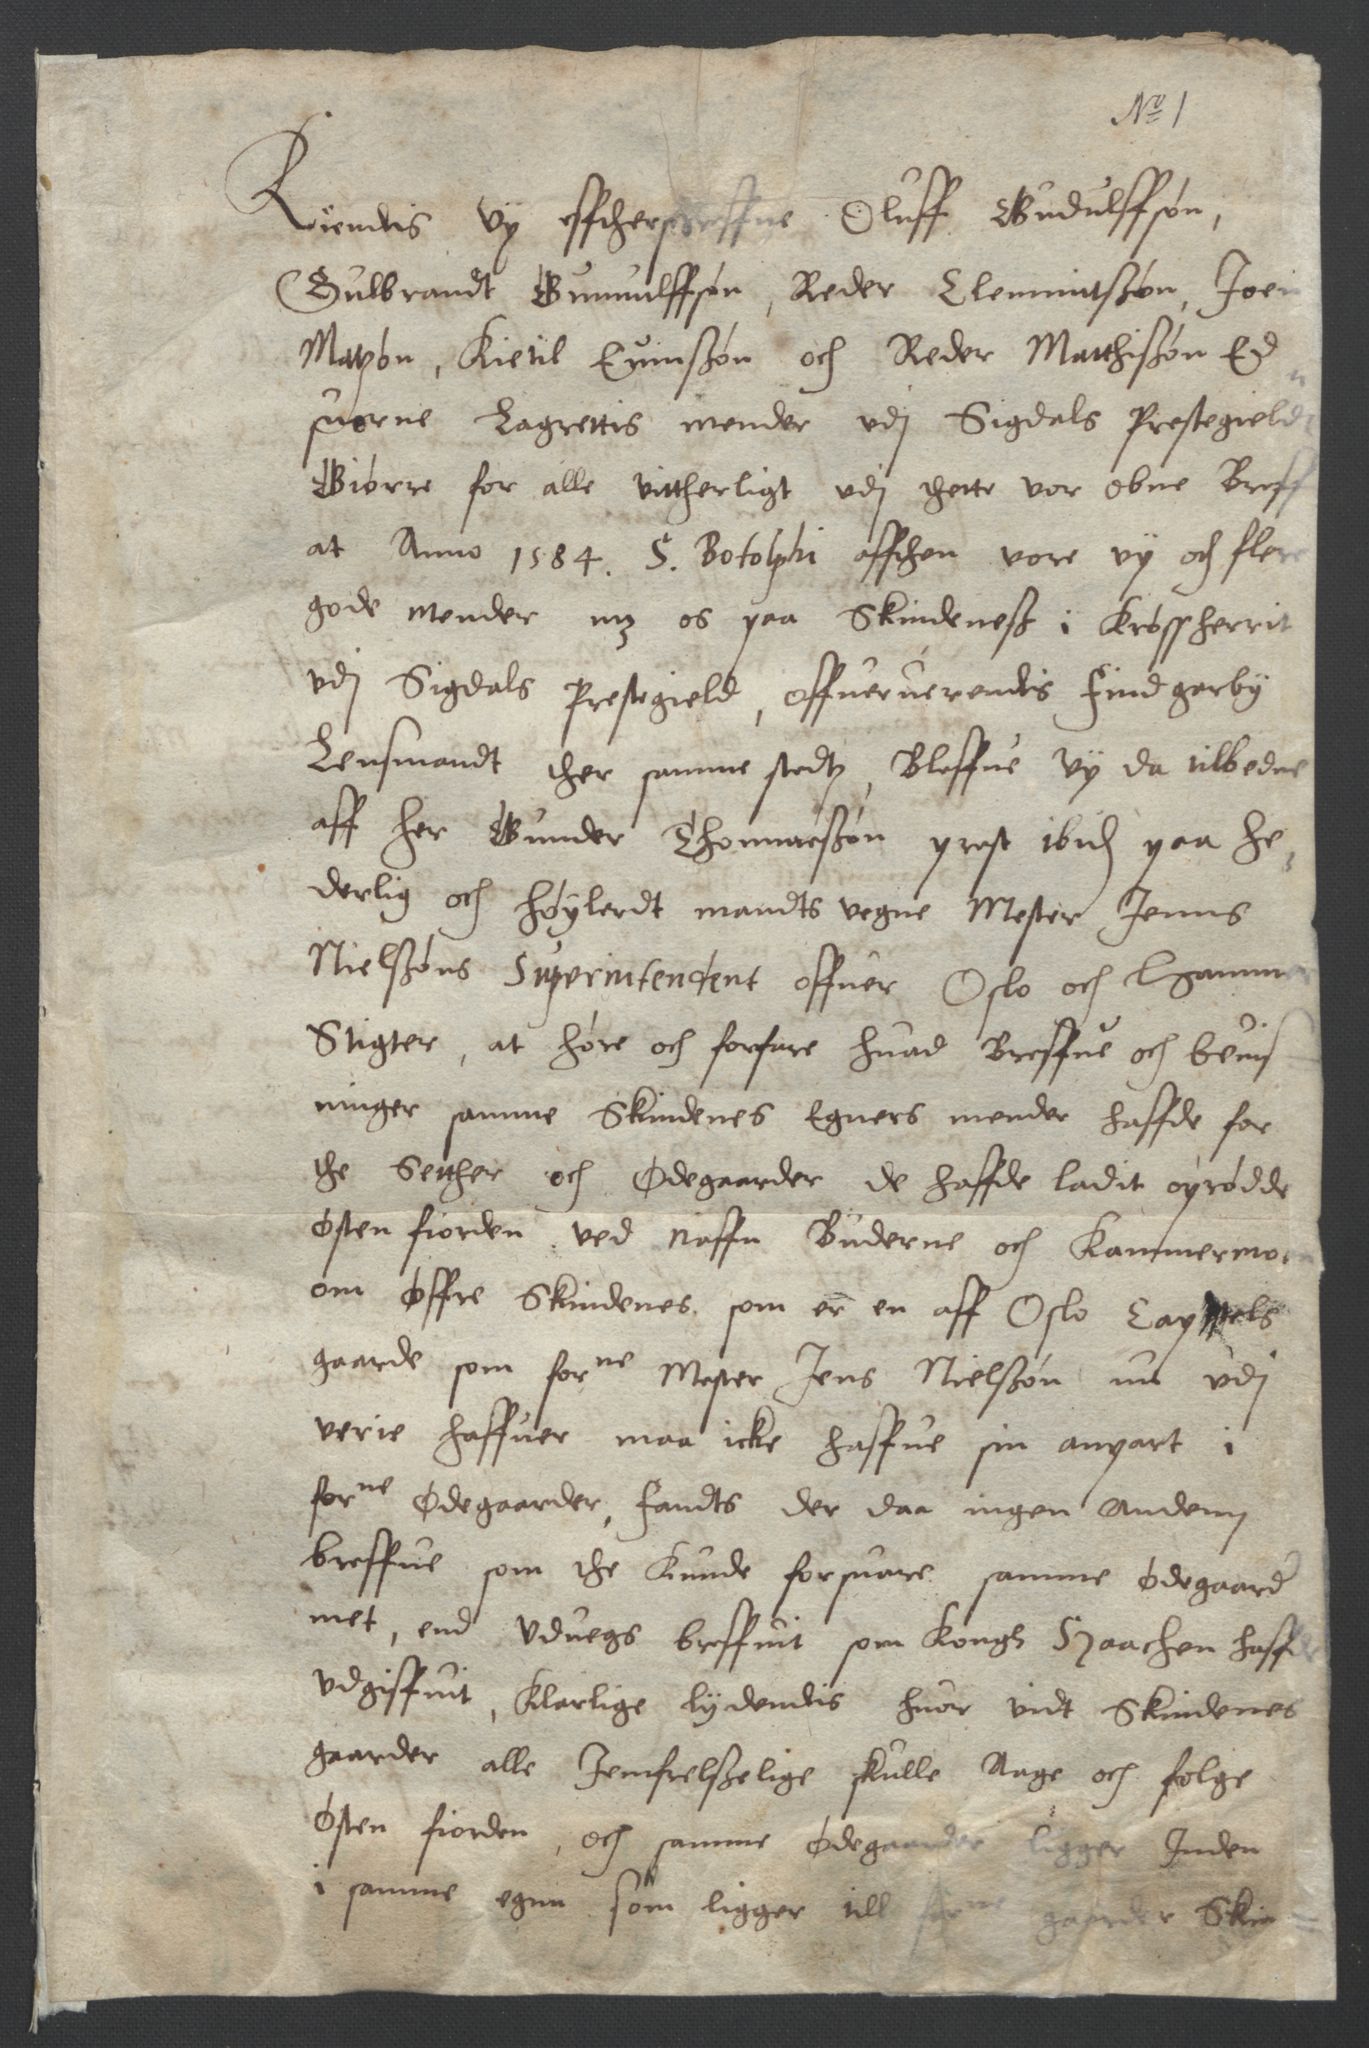 No 1
Kiendis vÿ effthersch[re]ffne Oluff Gudulffsøn,
Gulbrandt Gunnulffsøn, Reder Clemmitszøn, Joen
Matzøn, Kietil Euinszøn och Reder Matthiszøn Ed
suorne Lagrettis mender vdj Sigdals Prestegield
Giørre for alle vittherligt vdj thette vor obne Breff
at Anno 1584. S. Botolphi afften vore vÿ och flere
gode mender mz os paa Skindenesz i Krøssherrit
vdj Sigdals Prestegield, offueruerendis Find garbÿ
Lensmandt ther samme stedtz, Bleffue vÿ da tilbedne
aff her Gunder Thommeszøn prest ibid paa he,,
derlig och høÿlerdt mandts vegne Mester Jenns
Nielszøns Superintendent offuer Oslo och Hammers
Stigter, at høre och forfare huad Breffue och beuis
ninger samme Skindenes Egners mender haffde for
the Setther och Ødegaarder de haffde ladit oprødde
østen fiorden ved naffn Buderne och Kammermoen
om øffre Skindenes som er en aff Oslo Cappitels
gaarde som forne Mester Jens Nielszøn nu vdj
verie haffuer maa icke haffue sin anpart i
forne Ødegaarder, Fandts der daa ingen andenn
breffue som the kunde forsuare samme ødegaard
met, end vduegs breffuit som Kongh Haachen haffde
vdgiffuit, klarlige lÿdendis huor vidt Skindenes
gaarder alle Jemfrelszelige skulle aage och følge
Østen fiorden, och samme ødegaarder ligger Inden
i samme egnn som ligger till forne gaarder Skin=